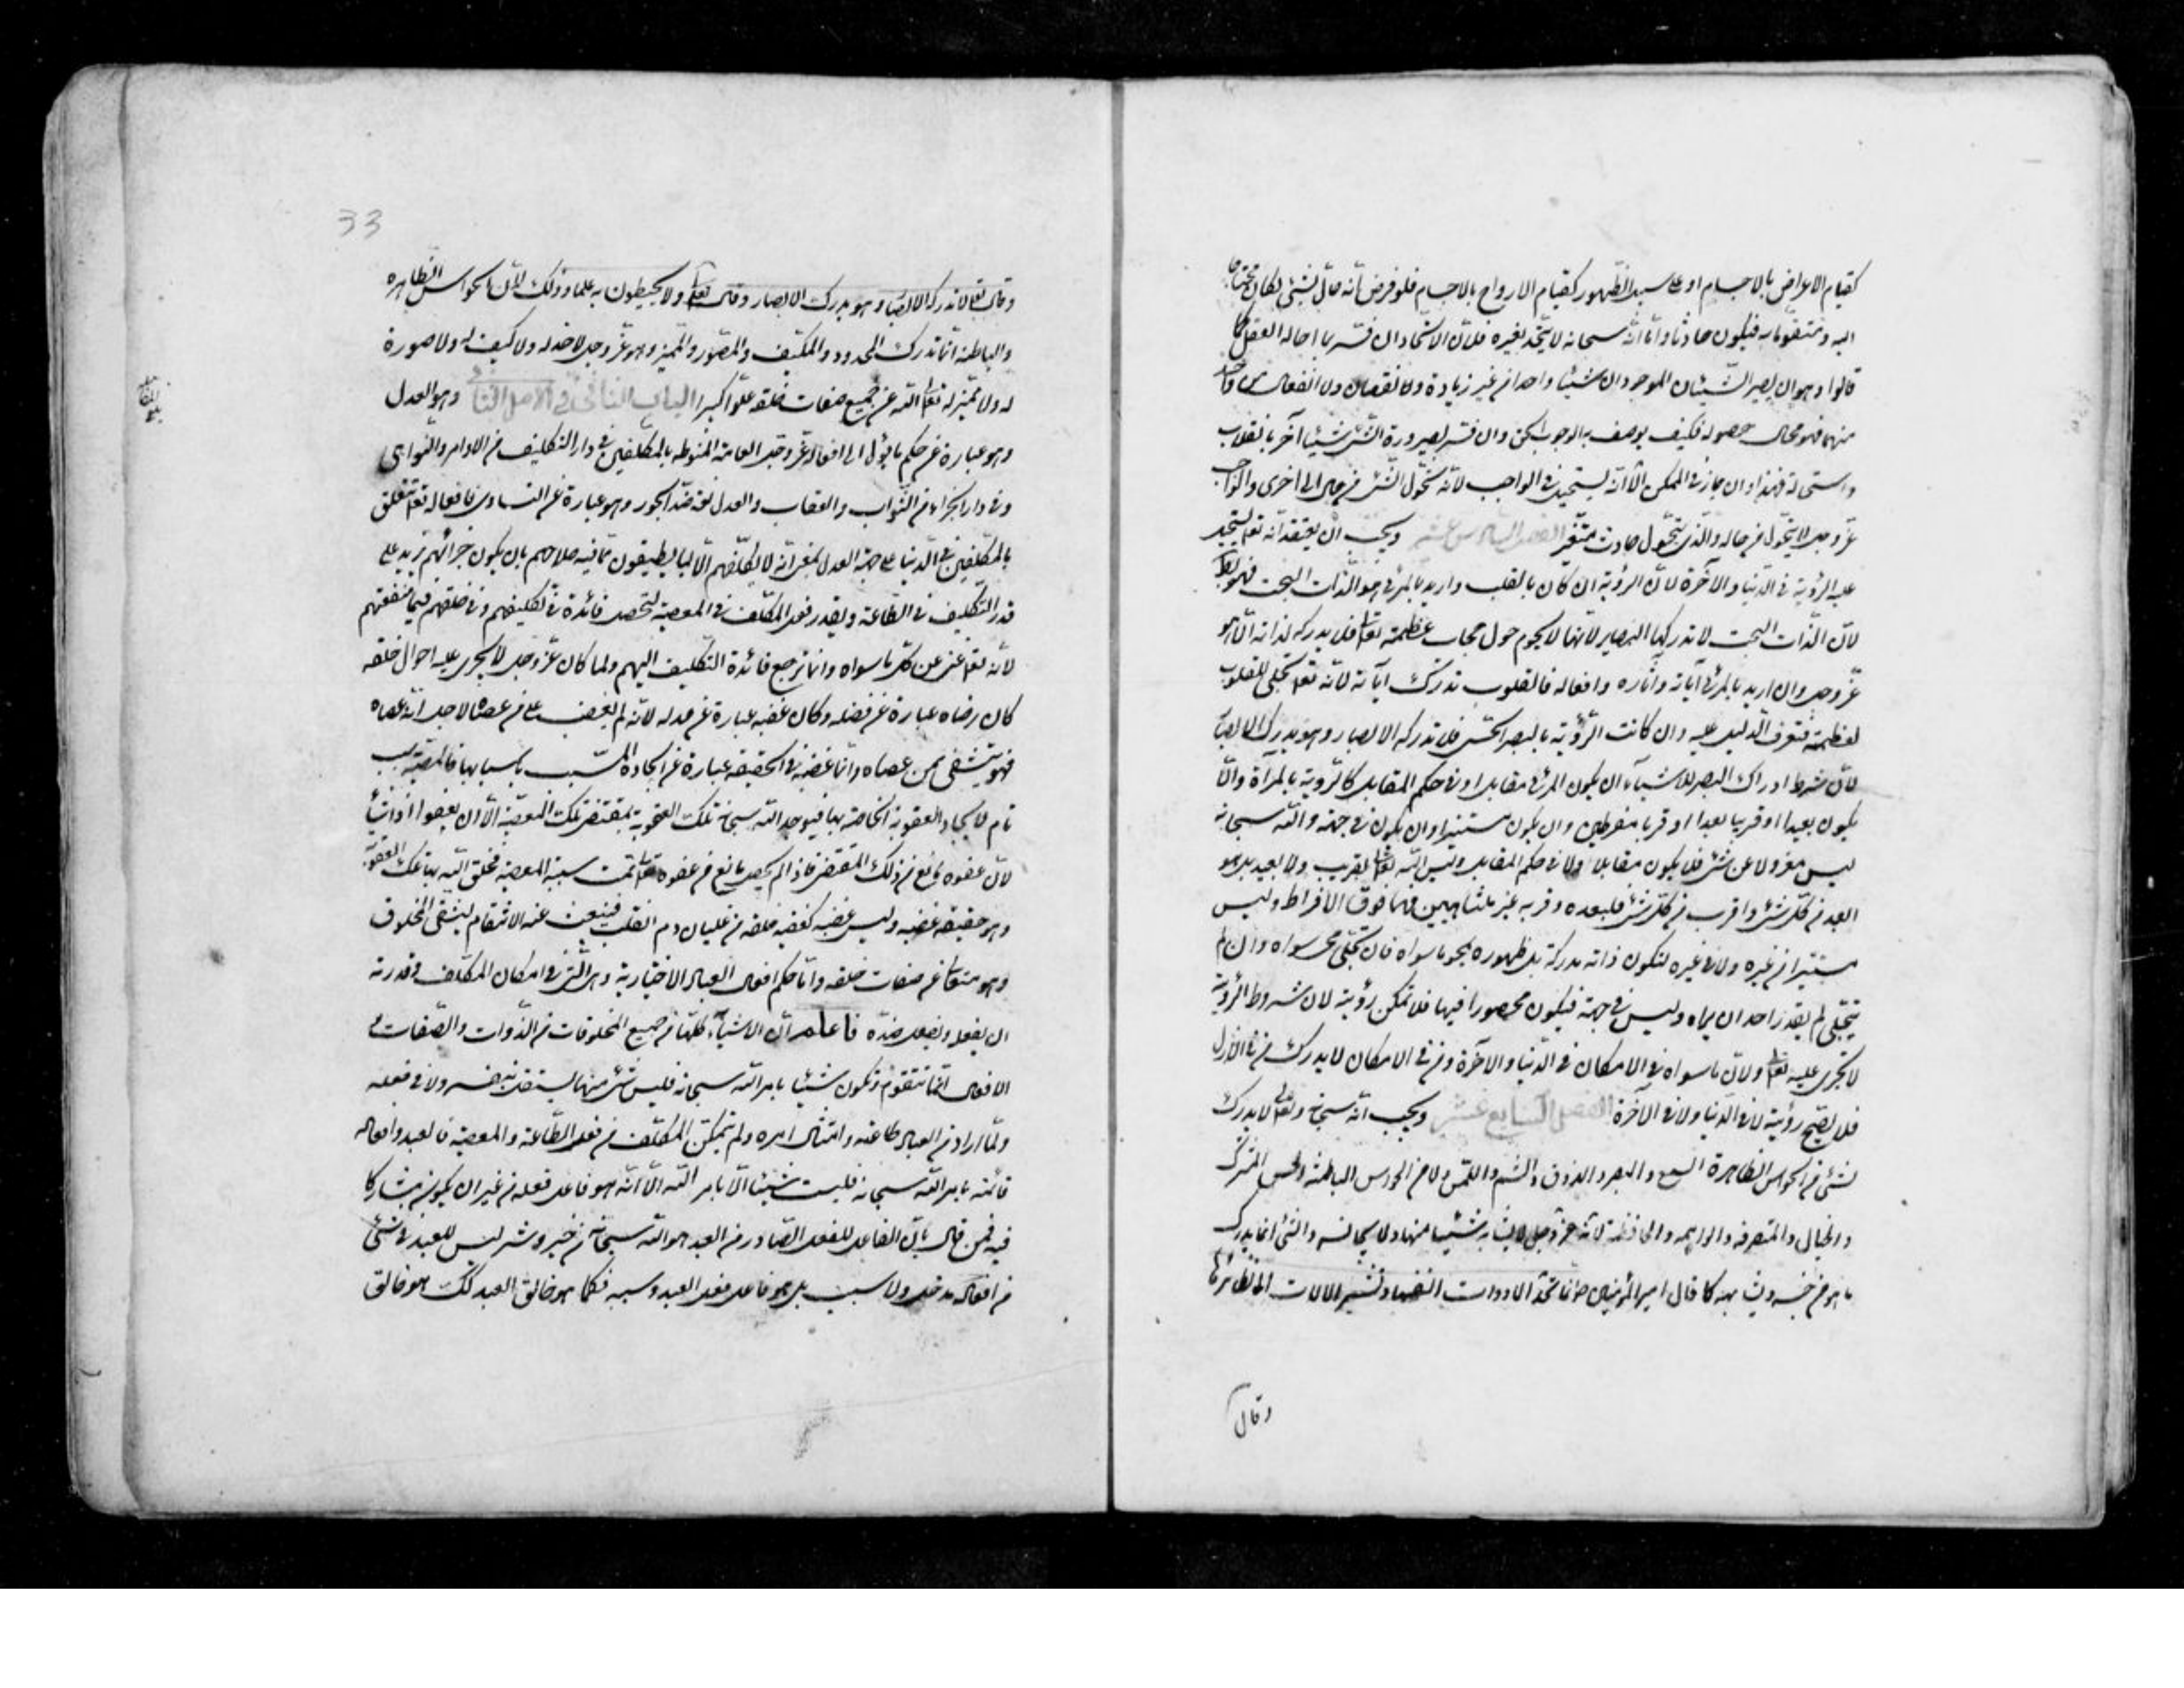 كقيام الاعراض بالاجسام او على سبيل الظهور كقيام الارواح بالاجسام فلو فرض انه حال بشئ لكان محتاجا
اليه ومتقوما به فيكون حادثا واما انه سبحانه لا يتحد بغيره فلان الاتحاد ان فسر بما احاله العقل كما
قالوا وهو ان يصير الشيئان الموجودان شيئا واحدا من غير زيادة ولا نقصان ولا انفعال من واحد
منهما فهو محال حصوله فكيف يوصف به الواجب الحق وان فسر بصيرورة الشئ شيئا آخر بانقلاب
واستحالة فهذا وان جاز في الممكن الا انه يستحيل في الواجب لانه تحول الشئ من حال الى اخرى والواجب
عز وجل لا يتحول من حاله والذي يتحول حادث متغير الفصل السادس عشر ويجب ان يعتقد انه تعالى يستحيل
عليه الرؤية في الدنيا والآخرة لان الرؤية ان كان بالقلب واريد بالمرئي هو الذات البحت فهو باطل
لان الذات البحت لا تدركها البصاير لانها لا تحوم حول حجاب عظمته تعالى فلا يدركه لذاته الا هو
عز وجل وان اريد بالمرئي آياته وآثاره وافعاله فالقلوب تدرك آياته لانه تعالى تجلى للقلوب
لعظمته فتعرف الدليل عليه وان كانت الرؤية بالبصر الحسي فلا تدركه الابصار وهو يدرك الابصار
لان شرط ادراك البصر للاشياء ان يكون المرئي مقابلا او في حكم المقابل كالرؤية بالمرآة والا
يكون بعيدا او قريبا بعدا او قربا مفرطين وان يكون مستنيرا وان يكون في جهة والله سبحانه
ليس معزولا عن شئ فلا يكون مقابلا ولا في حكم المقابل وليس الله تعالى بقريب ولا بعيد بل هو
ابعد من كل شئ واقرب من كل شئ فبعده وقربه غير متناهيين فهما فوق الافراط وليس
مستنيرا من غيره ولا في غيره لتكون ذاته مدركة بل ظهوره يمحو ما سواه فان تجلى محى سواه وان لم
يتجلى لم يقدر احد ان يراه وليس في جهة فيكون محصورا فيها فلا تمكن رؤيته لان شروط الرؤية
لا تجرى عليه تعالى ولان ما سواه في الامكان في الدنيا والآخرة ومن في الامكان لا يدرك من في الازل
فلا يصح رؤيته لا في الدنيا ولا في الآخرة الفصل السابع عشر ويجب انه سبحانه وتعالى لا يدرك
بشئ من الحواس الظاهرة السمع والبصر والذوق والشم واللمس ولا من الحواس الباطنة الحس المشترك
والخيال والمتصرفة والواهمة والحافظة لانه عز وجل لا يشابه شيئا منها ولا يجانسه والشئ انما يدرك
ما هو من جنسه وشبهه كما قال امير المؤمنين ع انما تحد الادوات انفسها وتشير الالات الى نظائرها
وقال
33
وقال تعالى لا تدركه الابصار وهو يدرك الابصار وقال تعالى ولا يحيطون به علما وذلك لان الحواس الظاهرة
والباطنة انما تدرك المحدود والمكيف والمصور والمميز وهو عز وجل لا حد له ولا كيف له ولا صورة
له ولا تميز له تعالى الله عن جميع صفات خلقه علوا كبيرا الباب الثاني في الاصل الثاني وهو العدل
وهو عبارة عن حكم ما يؤل الى افعاله عز وجل العامة المنوطه بالمكلفين في دار التكليف من الاوامر والنواهى
وفى دار الجزاء من الثواب والعقاب والعدل لغة ضد الجور وهو عبارة عن التساوى فافعاله تعالى تتعلق
بالمكلفين في الدنيا على جهة العدل بمعنى انه لا يكلفهم الا بما يطيقون مما فيه صلاحهم بان يكون جزائهم يزيد على
قدر التكليف في الطاعة وبقدر فعل المكلف في المعصية لتحصل فائدة في تكليفهم وفى خلقهم فيما منفعتهم
لانه تعالى غنى عن كل ما سواه وانما ترجع فائدة التكليف اليهم ولما كان عز وجل لا يجرى عليه احوال خلقه
كان رضاه عبارة عن فضله وكان غضبه عبارة عن عدله لانه لم يغضب على من عصاه لاجل انه عصاه
فهو يتشفى ممن عصاه وانما غضبه في الحقيقه عبارة عن ايجاده المسبب باسبابها فالمعصية سبب
تام لايجاد العقوبة الخاصة بها فيوجد الله سبحانه تلك العقوبة بمقتضى تلك المعصية الا ان يعفو اذا شاء
لان عفوه مانع من ذلك المقتضى فاذا لم يحصل مانع من عفوه تعالى تمت سببية المعصية فخلق الله بها تلك العقوبة
وهو حقيقة غضبه وليس غضبه كغضب خلقه من غليان دم القلب فينبعث عنه الانتقام ليتشفى المخلوق
وهو متعال عن صفات خلقه واما حكم افعال العباد الاختيارية وهى التي في امكان المكلف وقدرته
ان يفعل ويفعل ضده فاعلم ان الاشياء كلها من جميع المخلوقات من الذوات والصفات و
الافعال انما تتقوم وتكون شيئا بامر الله سبحانه فليس شئ منها يستقل بنفسه ولا في فعله
ولما اراد من العباد طاعته وامتثال امره ولم يتمكن المكلف من فعل الطاعة والمعصية فالعبد وافعاله
قائمة بامر الله سبحانه فليست شيئا الا بامر الله الا انه هو فاعل فعله من غير ان يكون مشاركا
فيه فمن قال بان الفاعل للفعل الصادر من العبد هو الله سبحانه من خير وشر ليس للعبد في شئ
من افعاله مدخل ولا سبب بل هو فاعل فعل العبد وسببه فكما هو خالق العبد كك هو خالق